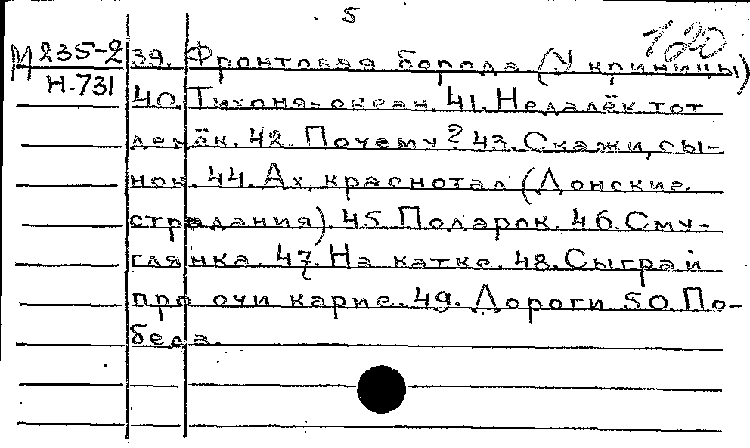 5
120
М 235-2 39. Фронтовая борода (У криницы)
Н-731
40. Тихоня-океан. 41. Недалёк тот
денёк. 42. Почему? 43. Скажи, сы-
нок. 44. Ах, краснотал (Донские
страдания). 45. Подарок. 46. Сму-
глянка. 47. На катке. 48. Сыграй
про очи карие. 49. Дороги 50. По-
беда.